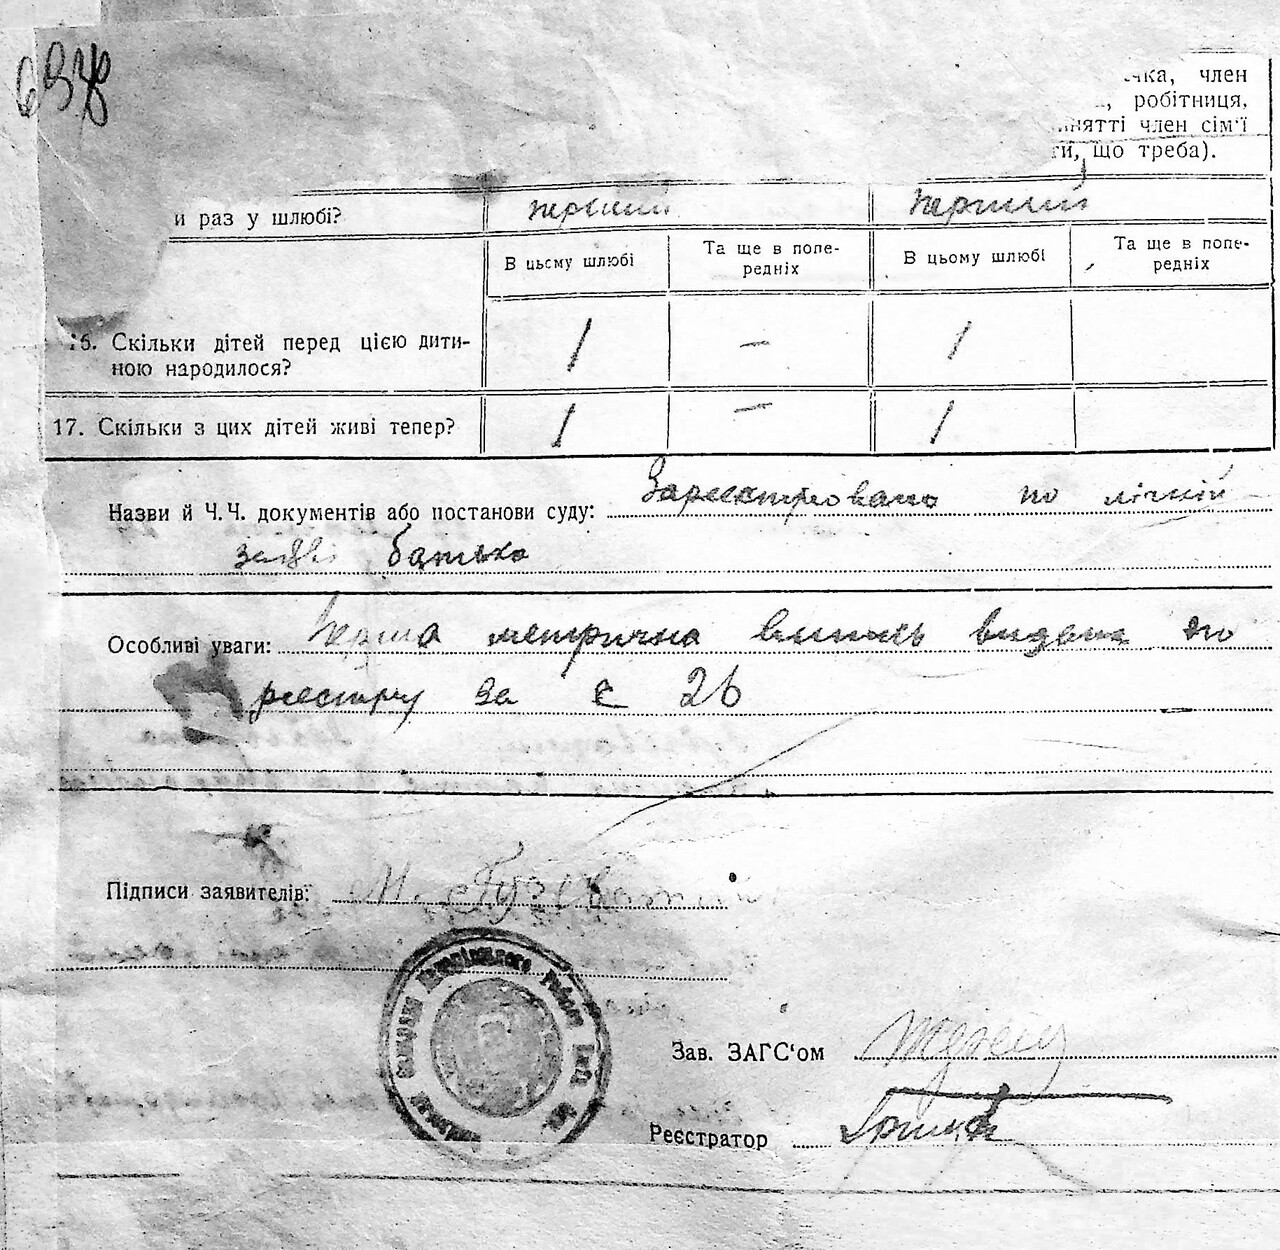 чка, член
робітниця,
нятті член сім'ї
ти, що треба).
и раз у шлюбі? перший перший
В цьому шлюбі Та ще в попе- В цьому шлюбі Та ще в попе-
редніх редніх
16. Скільки дітей перед цією дити- 1 — 1
ною народилося?
17. Скільки з цих дітей живі тепер? 1 — 1
Назви й Ч.Ч. документів або постанови суду: Зареєстровано по лічній
заяві батька
Особливі уваги: Перша метрична випись видана по
реєстру за є 26
Підписи заявителів: М.
Зав. ЗАГС'ом
Реєстратор